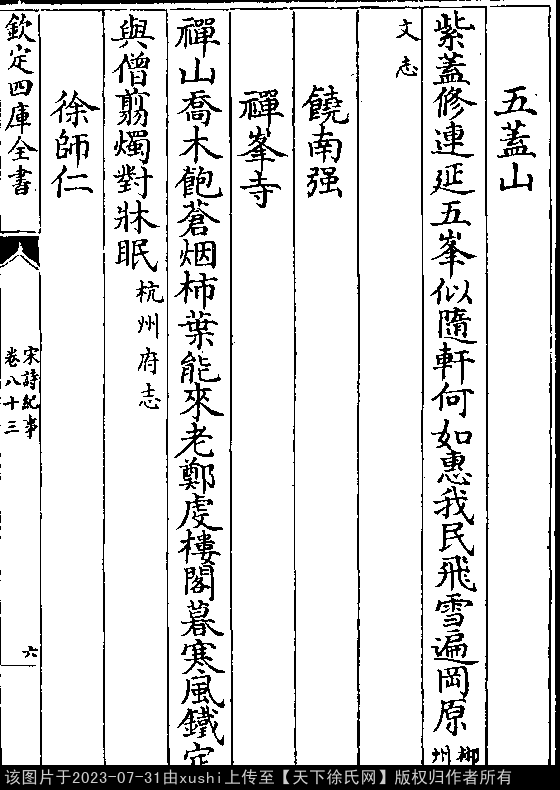 五蓋山
紫蓋修連延五峯似隨軒何如惠我民飛雪遍岡原郴州
文志
饒南强
禪峯寺
禪山喬木飽蒼烟柿葉能來老鄭虔樓閣暮寒風鐵定
與僧翦燭對牀眠杭州府志
徐師仁
欽定四庫全書
宋詩紀事
卷八十三
六
该图片于2023-07-31由xushi上传至【天下徐氏网】版权归作者所有